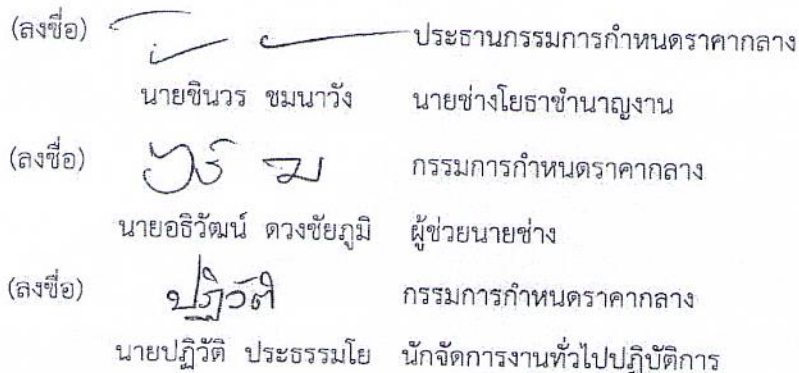 (ลงชื่อ) ประธานกรรมการกำหนดราคากลาง
นายชินวร ชมนาวัง นายช่างโยธาชำนาญงาน
(ลงชื่อ) กรรมการกำหนดราคากลาง
นายอธิวัฒน์ ดวงชัยภูมิ ผู้ช่วยนายช่าง
(ลงชื่อ) ปฏิวัติ กรรมการกำหนดราคากลาง
นายปฏิวัติ ประธรรมโย นักจัดการงานทั่วไปปฏิบัติการ